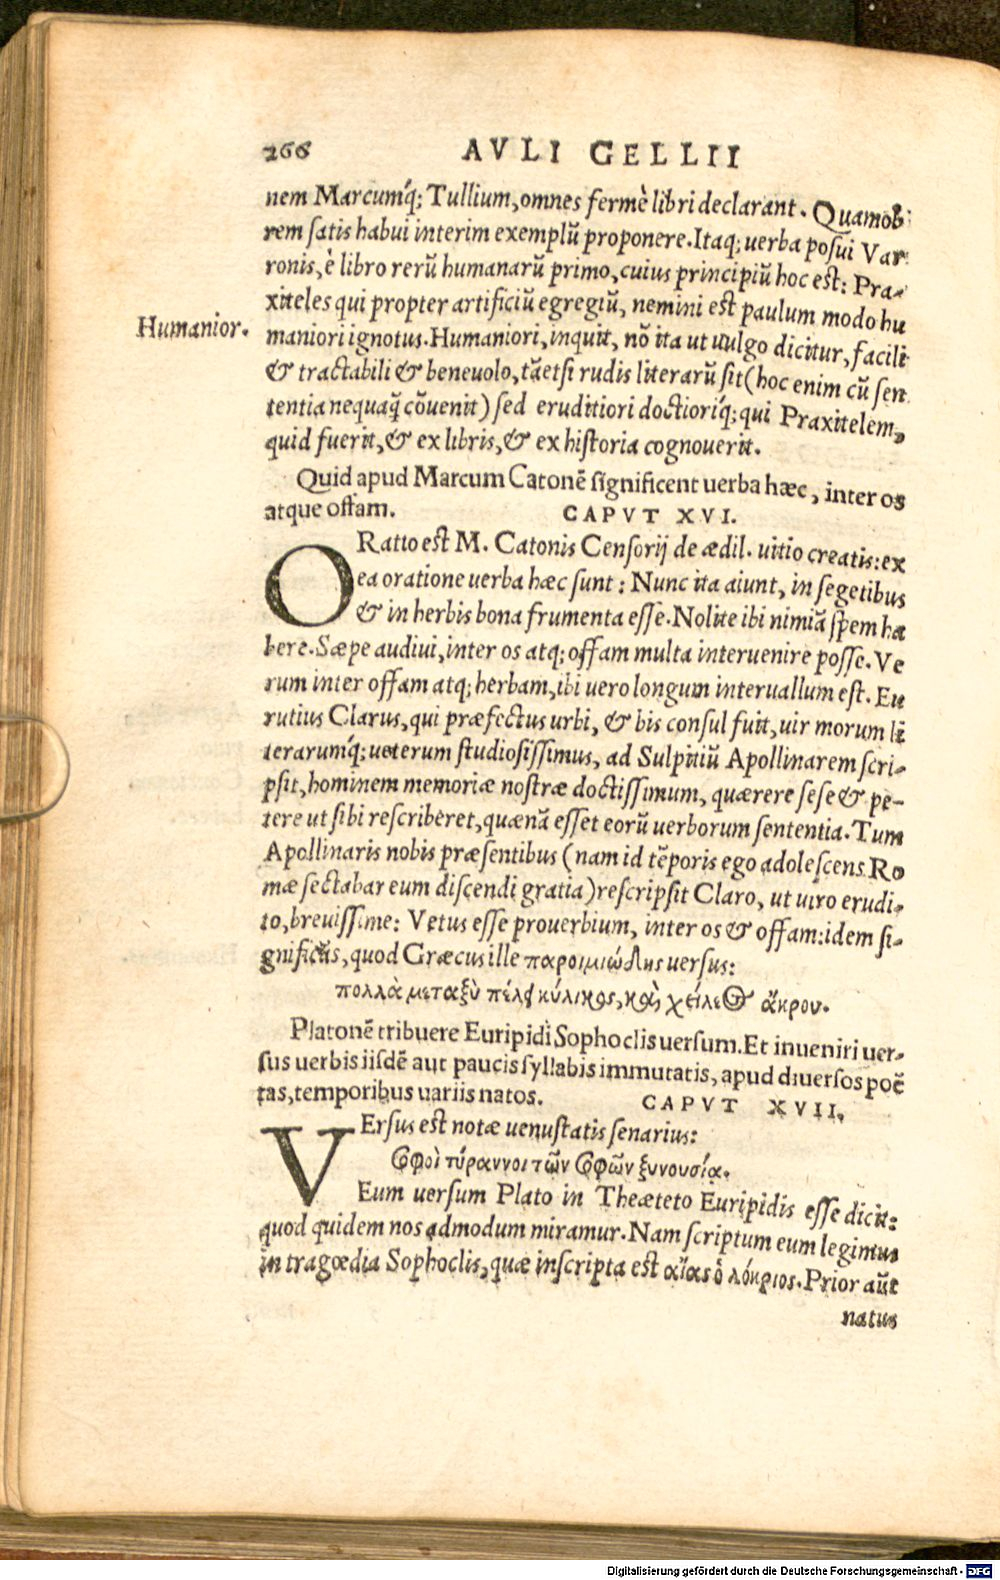 266 AVLI GELLII
nem Marcumq́; Tullium, omnes fermè libri declarant. Quamob
rem satis habui interim exemplũ proponere. Itaq; uerba posui Var
ronis, è libro rerũ humanarũ primo, cuius principiũ hoc est: Pra-
xiteles qui propter artificiũ egregiũ, nemini est paulum modo hu
Humanior.
maniori ignotus. Humaniori, inquit, nõ ita ut uulgo dicitur, facili
& tractabili & beneuolo, tãetsi rudis literarũ sit (hoc enim cũ sen
tentia nequaq̃ cõuenit) sed eruditiori doctioriq́; qui Praxitelem,
quid fuerit, & ex libris, & ex historia cognouerit.
Quid apud Marcum Catonẽ significent uerba hæc, inter os
atque offam. CAPVT XVI.
ORatio est M. Catonis Censorij de ædil. uitio creatis: ex
ea oratione uerba hæc sunt: Nunc ita aiunt, in segetibus
& in herbis bona frumenta esse. Nolite ibi nimiã spem ha
bere. Sæpe audiui, inter os atq; offam multa interuenire posse. Ve
rum inter offam atq; herbam, ibi uero longum interuallum est. Eu
rutius Clarus, qui præfectus urbi, & bis consul fuit, uir morum li
terarumq́; ueterum studiosissimus, ad Sulpitiũ Apollinarem scri-
psit, hominem memoriæ nostræ doctissimum, quærere sese & pe-
tere ut sibi rescriberet, quænã esset eorũ uerborum sententia. Tum
Apollinaris nobis præsentibus (nam id tẽporis ego adolescens Ro
mæ sectabar eum discendi gratia) rescripsit Claro, ut uiro erudi-
to, breuissime: Vetus esse prouerbium, inter os & offam: idem si-
gnificãs, quod Græcus ille παροιμιώδης uersus:
πολλὰ μεταξὺ πέλει κύλικος, καὶ χείλεος ἄκρου.
Platonẽ tribuere Euripidi Sophoclis uersum. Et inueniri uer-
sus uerbis iisdẽ aut paucis syllabis immutatis, apud diuersos poẽ
tas, temporibus uariis natos. CAPVT XVII.
VErsus est notæ uenustatis senarius:
σοφοὶ τύραννοι τῶν σοφῶν ξυνουσία.
Eum uersum Plato in Theæteto Euripidis esse dicit:
quod quidem nos admodum miramur. Nam scriptum eum legimus
in tragœdia Sophoclis, quæ inscripta est αἴας ὁ λόκριος. Prior aũt
natus
Digitalisierung gefördert durch die Deutsche Forschungsgemeinschaft - DFG